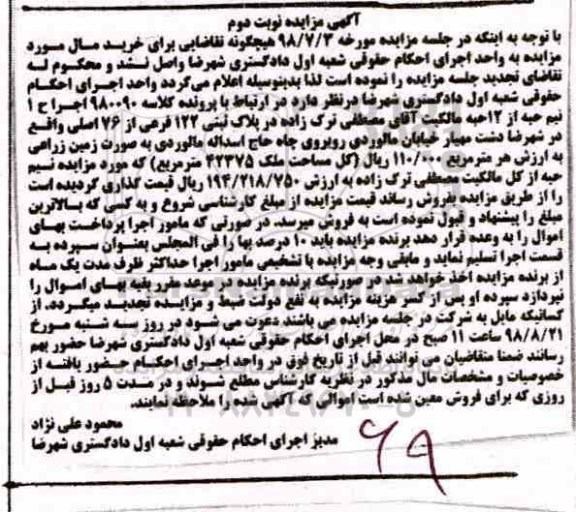 آگهی مزایده نوبت دوم
با توجه به اینکه در جلسه مزایده مورخه ۹۸/۷/۳ هیچگونه تقاضایی برای خرید مال مورد
مزایده به واحد اجرای احکام حقوقی شعبه اول دادگستری شهرضا واصل نشد و محکوم له
تقاضای تجدید جلسه مزایده را نموده است لذا بدینوسیله اعلام می‌گردد واحد اجرای احکام
حقوقی شعبه اول دادگستری شهرضا درنظر دارد در ارتباط با پرونده کلاسه ۹۸۰۰۹۰ اجرا ح ۱
نیم حبه از ۱۲حبه مالکیت آقای مصطفی ترک زاده در پلاک ثبتی ۱۲۲ فرعی از ۷۶ اصلی واقع
در شهرضا دشت مهیار خیابان مالوردی روبروی چاه حاج اسداله مالوردی به صورت زمین زراعی
به ارزش هر مترمربع ۱۱۰/۰۰۰ ریال (کل مساحت ملک ۴۲۳۷۵ مترمربع) که مورد مزایده نسیم
حبه از کل مالکیت مصطفی ترک زاده به ارزش ۱۹۴/۲۱۸/۷۵۰ ریال قیمت گذاری گردیده است
را از طریق مزایده بفروش رساند قیمت مزایده از مبلغ کارشناسی شروع و به کسی که بالاترین
مبلغ را پیشنهاد و قبول نموده است به فروش میرسد. در صورتی که مامور اجرا پرداخت بهای
اموال را به وعده قرار دهد برنده مزایده باید ۱۰ درصد بها را فی المجلس بعنوان سپرده به
قسمت اجرا تسلیم نماید و مابقی وجه مزایده با تشخیص مامور اجرا حداکثر ظرف مدت یک ماه
از برنده مزایده اخذ خواهد شد در صورتیکه برنده مزایده در موعد مقرر بقیه بهای اموال را
نپردازد سپرده او پس از کسر هزینه مزایده به نفع دولت ضبط و مزایده تجدید میگردد. از
کسانیکه مایل به شرکت در جلسه مزایده می باشند دعوت می شود در روز سه شنبه مورخ
۹۸/۸/۲۱ ساعت ۱۱ صبح در محل اجرای احکام حقوقی شعبه اول دادگستری شهرضا حضور بهم
رسانند ضمنا متقاضیان می توانند قبل از تاریخ فوق در واحد اجرای احکام حضور یافته از
خصوصیات و مشخصات مال مذکور در نظریه کارشناس مطلع شوند و در مدت ۵ روز قبل از
روزی که برای فروش معین شده است اموالی که آگهی شده را ملاحظه نمایند.
محمود علی نژاد
مدیر اجرای احکام حقوقی شعبه اول دادگستری شهرضا
۶۹